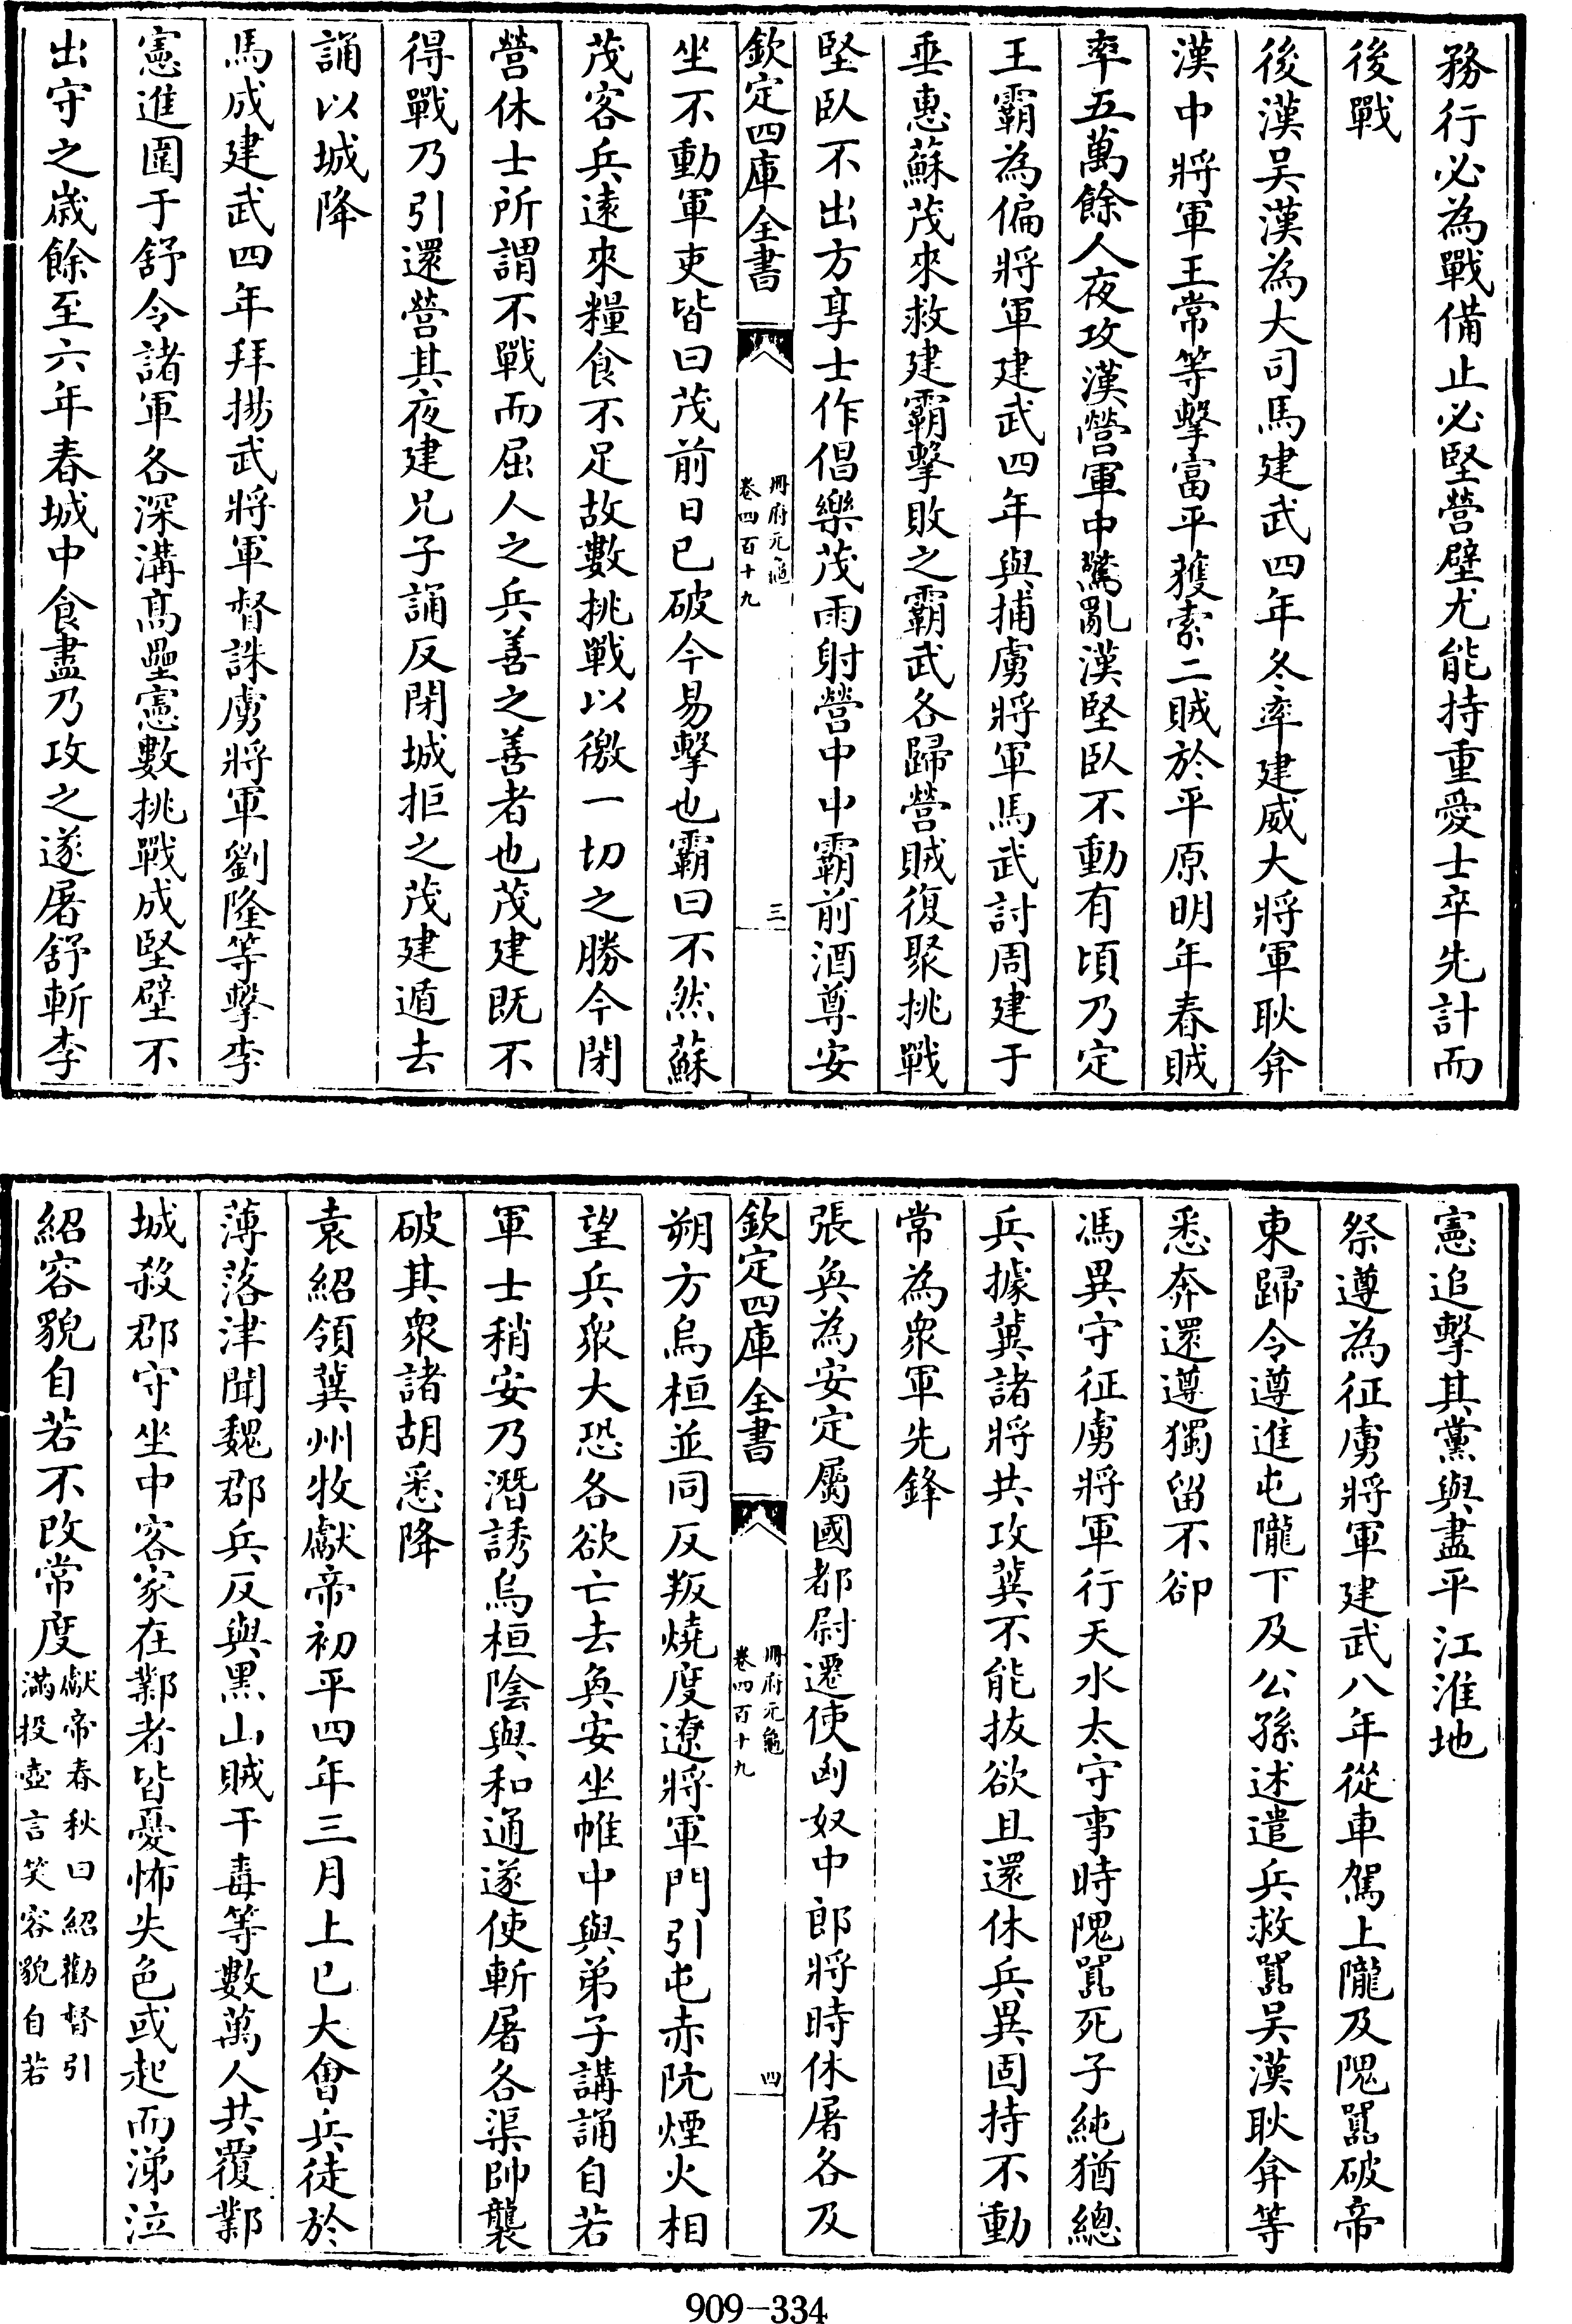 務行必為戰備止必堅營壁尤能持重愛士卒先計而
後戰
後漢吳漢為大司馬建武四年冬率建威大將軍耿弇
漢中將軍王常等擊富平獲索二賊於平原明年春賊
率五萬餘人夜攻漢營軍中驚亂漢堅臥不動有頃乃定
王霸為偏將軍建武四年與捕虜將軍馬武討周建于
垂惠蘇茂來救建霸擊敗之霸武各歸營賊復聚挑戰
堅臥不出方享士作倡樂茂雨射營中中霸前酒尊安
欽定四庫全書
冊府元龜
卷四百十九
三
坐不動軍吏皆曰茂前日已破今易擊也霸曰不然蘇
茂客兵遠來糧食不足故數挑戰以徼一切之勝今閉
營休士所謂不戰而屈人之兵善之善者也茂建既不
得戰乃引還營其夜建兄子誦反閉城拒之茂建遁去
誦以城降
馬成建武四年拜揚武將軍督誅虜將軍劉隆等擊李
憲進圍于舒令諸軍各深溝髙壘憲數挑戰成堅壁不
出守之歲餘至六年春城中食盡乃攻之遂屠舒斬李
憲追擊其黨與盡平江淮地
祭遵為征虜將軍建武八年從車駕上隴及隗囂破帝
東歸令遵進屯隴下及公孫述遣兵救囂吳漢耿弇等
悉奔還遵獨留不卻
馮異守征虜將軍行天水太守事時隗囂死子純猶總
兵據冀諸將共攻冀不能拔欲且還休兵異固持不動
常為衆軍先鋒
張奐為安定屬國都尉遷使匈奴中郎將時休屠各及
欽定四庫全書
冊府元龜
卷四百十九
四
朔方烏桓並同反叛燒度遼將軍門引屯赤阬煙火相
望兵衆大恐各欲亡去奐安坐帷中與弟子講誦自若
軍士稍安乃潛誘烏桓陰與和通遂使斬屠各渠帥襲
破其衆諸胡悉降
袁紹領冀州牧獻帝初平四年三月上巳大會兵徒於
薄落津聞魏郡兵反與黑山賊干毒等數萬人共覆鄴
城殺郡守坐中客家在鄴者皆憂怖失色或起而涕泣
紹容貌自若不改常度獻帝春秋曰紹勸督引
滿投壺言笑容貌自若
909-334